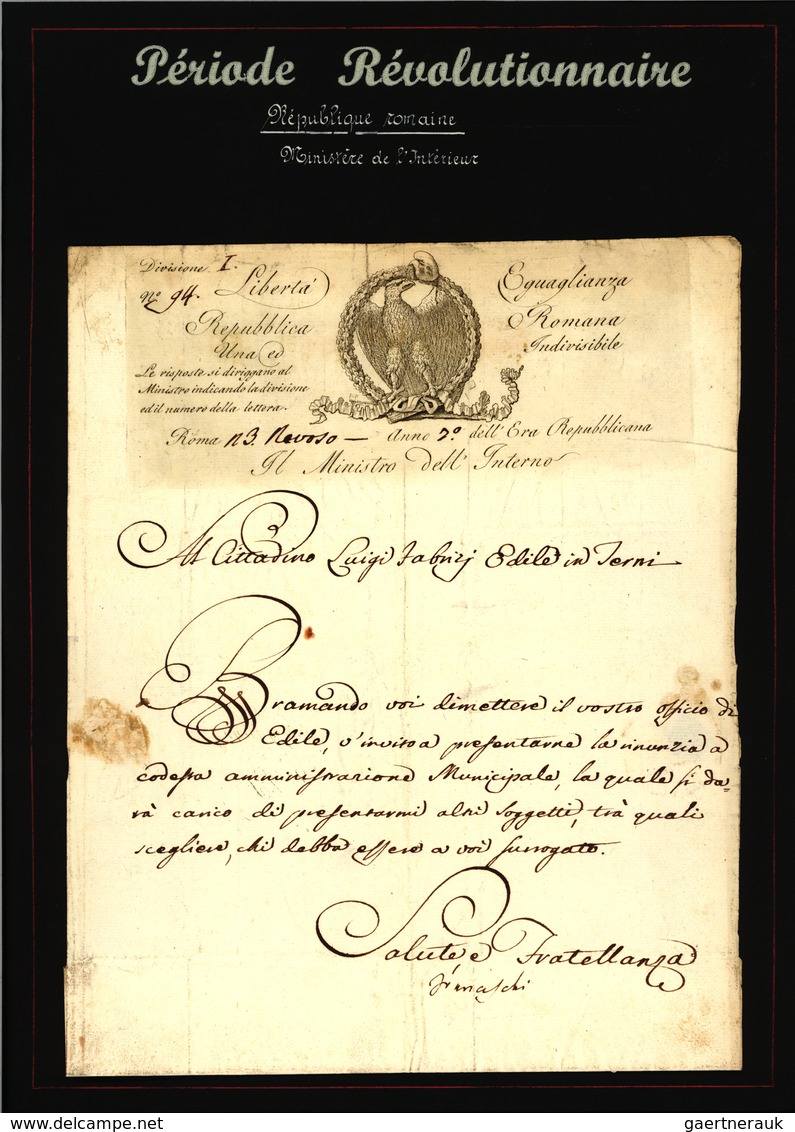 Période Révolutionnaire
République romaine
Ministère de l'Intérieur
Divisione I.
Nº 94. Libertà Eguaglianza
Repubblica Romana
Una ed Indivisibile
Le risposte si diriggano al
Ministro indicando la divisione
ed il numero della lettera.
Roma 23 Nevoso - Anno 7º dell'Era Repubblicana
Il Ministro dell'Interno
Al Cittadino Luigi Fabrizj Edile in Terni
Bramando voi dimettere il vostro officio di
Edile, v'invito a presentarne la rinunzia a
codesta amministrazione Municipale, la quale si da=
rà carico di presentarmi altri soggetti, trà quali
scegliere, chi debba essere a voi surrogato.
Salute e Fratellanza
delcampe.net
gaertnerauk